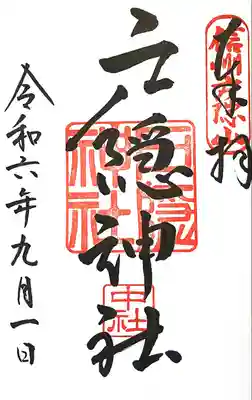 奉拝
信州戸隠
戸隠神社
戸隠神社
中社
令和六年九月一日